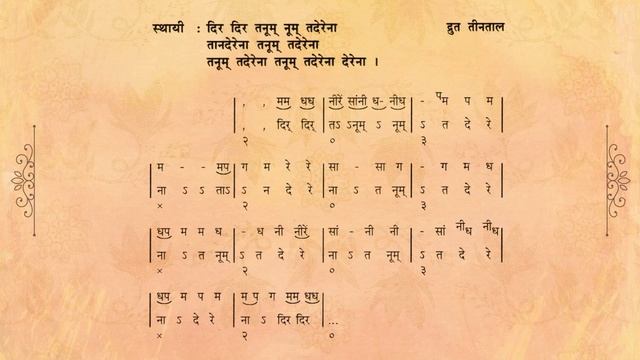 स्थायी : दिर दिर तनूम् नूम् तदेरेना द्रुत तीनताल
तानदेरेना तनूम् तदेरेना
तनूम् तदेरेना तनूम् तदेरेना देरेना ।
| , , मम धध | नीरें सांनी ध- नीध | - पम प म
| , , दिर् दिर् | तऽ ऽनूम् ऽ नूम् | ऽ त दे रे |
२ ० ३
म - - मप | ग म रे रे | सा - सा ग | - ग म ध
ना ऽ ऽ ताऽ | ऽ न दे रे | ना ऽ त नूम् | ऽ त दे रे |
× २ ० ३
धप म म ध | - ध नी नीरें | सां - नी नी | - सां नीध नीध
ना ऽ त नूम् | ऽ त दे रे | ना ऽ त नूम् | ऽ त दे रे |
× २ ० ३
धप म प म | म प ग मम धध |
ना ऽ दे रे | ना ऽ दिर दिर | ...
× २ ०